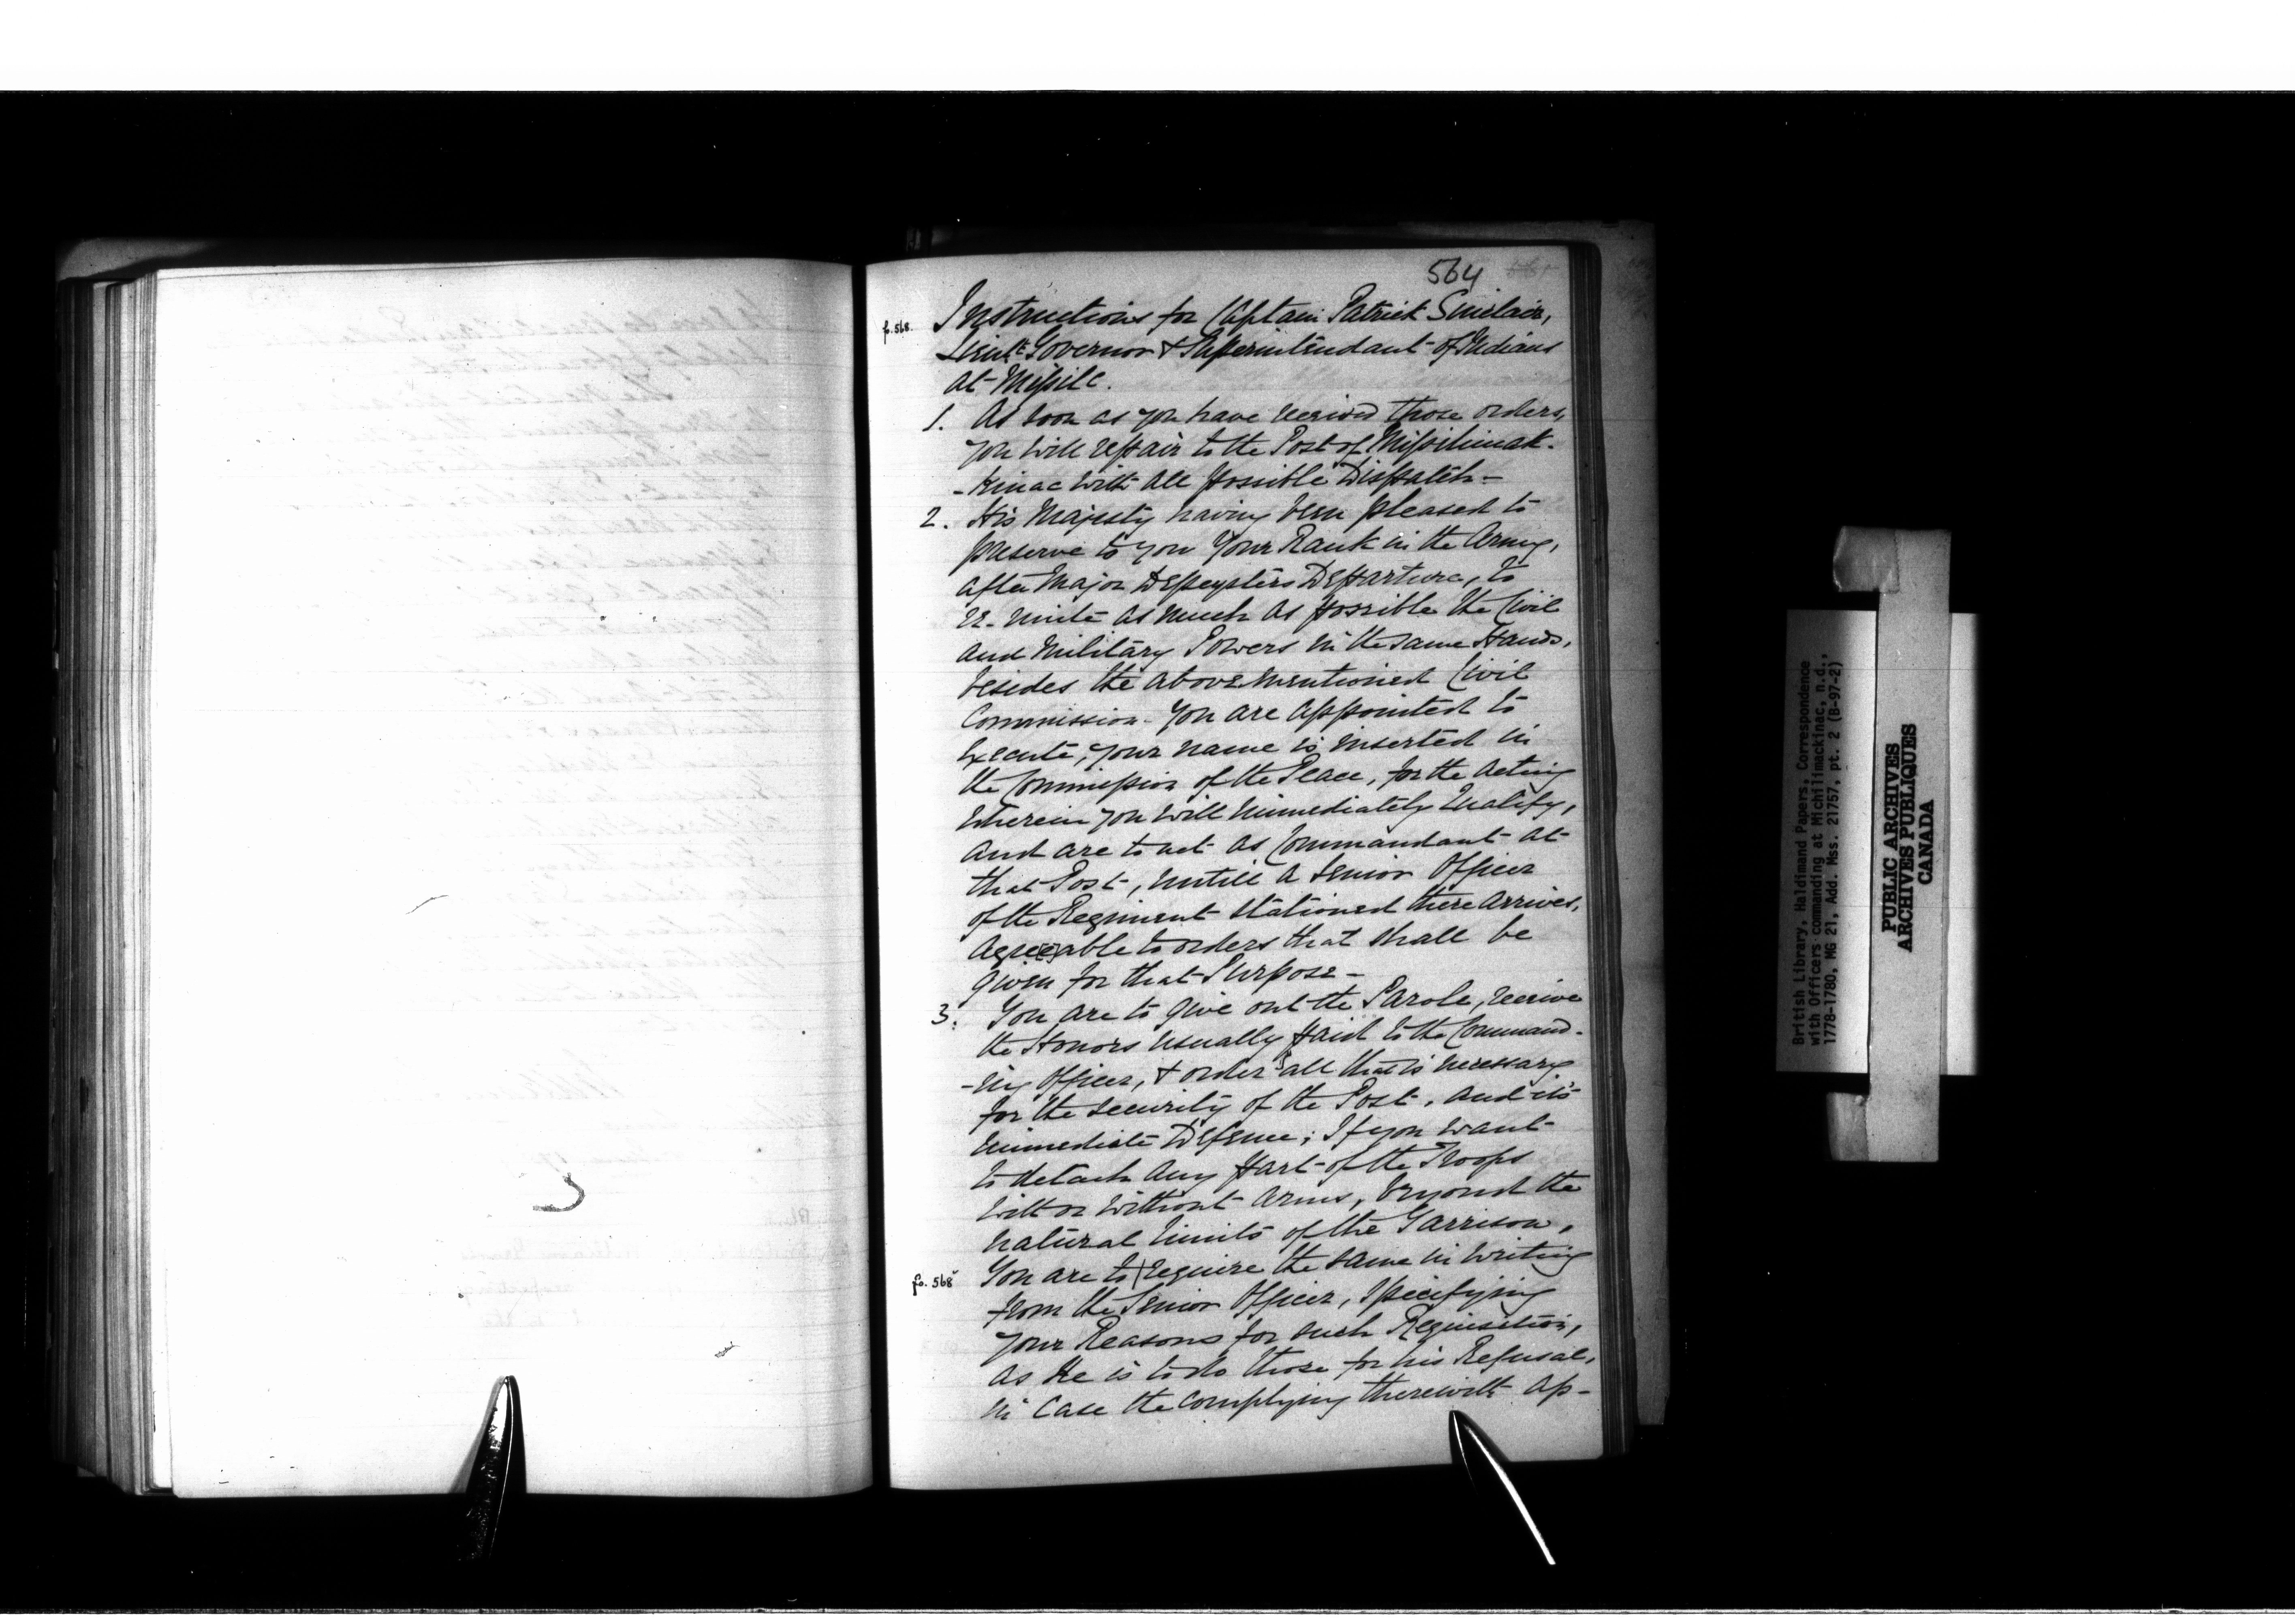 564
fo. 568.
Instructions for Captain Patrick Sinclair,
Lieut. Governor & Superintendant of Indians
at Missile.
1. As soon as you have received those orders,
you will repair to the Post of Missilimak-
-kinac with all possible Dispatch-
2. His Majesty having been pleased to
preserve to you Your Rank in the Army,
after Major Depeysters Departure, to
re-unite as much as possible the Civil
and Military Powers in the same Hands,
besides the above mentioned Civil
Commission - You are appointed to
execute, your name is inserted in
the Commission of the Peace, for the acting
wherein you will immediately Qualify,
and are to act as Commandant at
that Post, untill a Senior Officer
of the Regiment stationed there arrives,
agreeable to orders that shall be
given for that Purpose-
3. You are to give out the Parole, receive
the Honors usually paid to the Command-
-ing Officer, & order all that is necessary
for the security of the Post, and it's
immediate Defence; If you want
to detach any part of the Troops
with or without Arms, beyond the
natural limits of the Garrison,
fo. 568v
You are to | require the same in writing
from the Senior Officer, specifying
your Reasons for such Requisition,
as He is to do those for his Refusal,
in case the complying therewith ap-
British Library, Haldimand Papers, Correspondence
with Officers commanding at Michilimackinac, n.d.,
1778-1780, MG 21, Add. Mss. 21757, pt. 2 (B-97-2)
PUBLIC ARCHIVES
ARCHIVES PUBLIQUES
CANADA